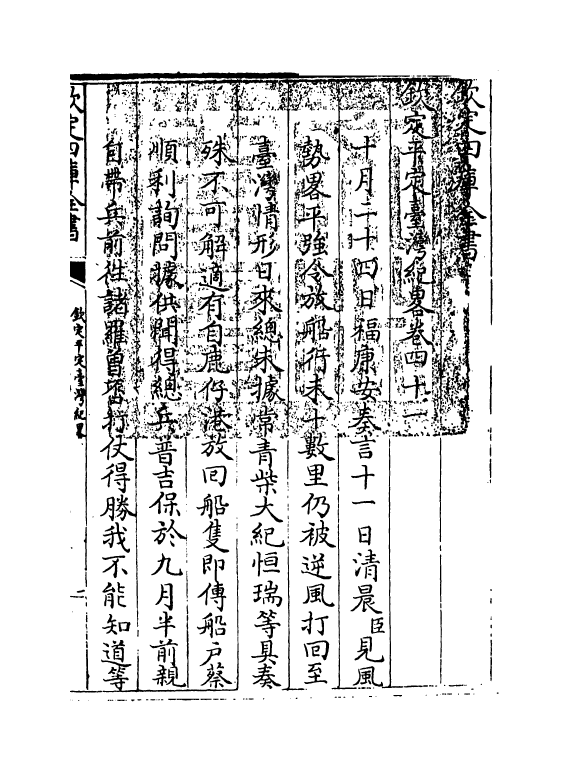 欽定四庫全書
欽定平定臺灣紀畧卷四十一
十月二十四日福康安奏言十一日清晨臣見風
勢畧平強令放船行未十數里仍被逆風打回至
臺灣情形日來總未據常青柴大紀恒瑞等具奏
殊不可解適有自鹿仔港放回船隻即傳船戶蔡
順利詢問據供聞得總兵普吉保於九月半前親
自帶兵前徃諸羅曾經打仗得勝我不能知道等
欽定四庫全書
欽定平定臺灣紀畧
一